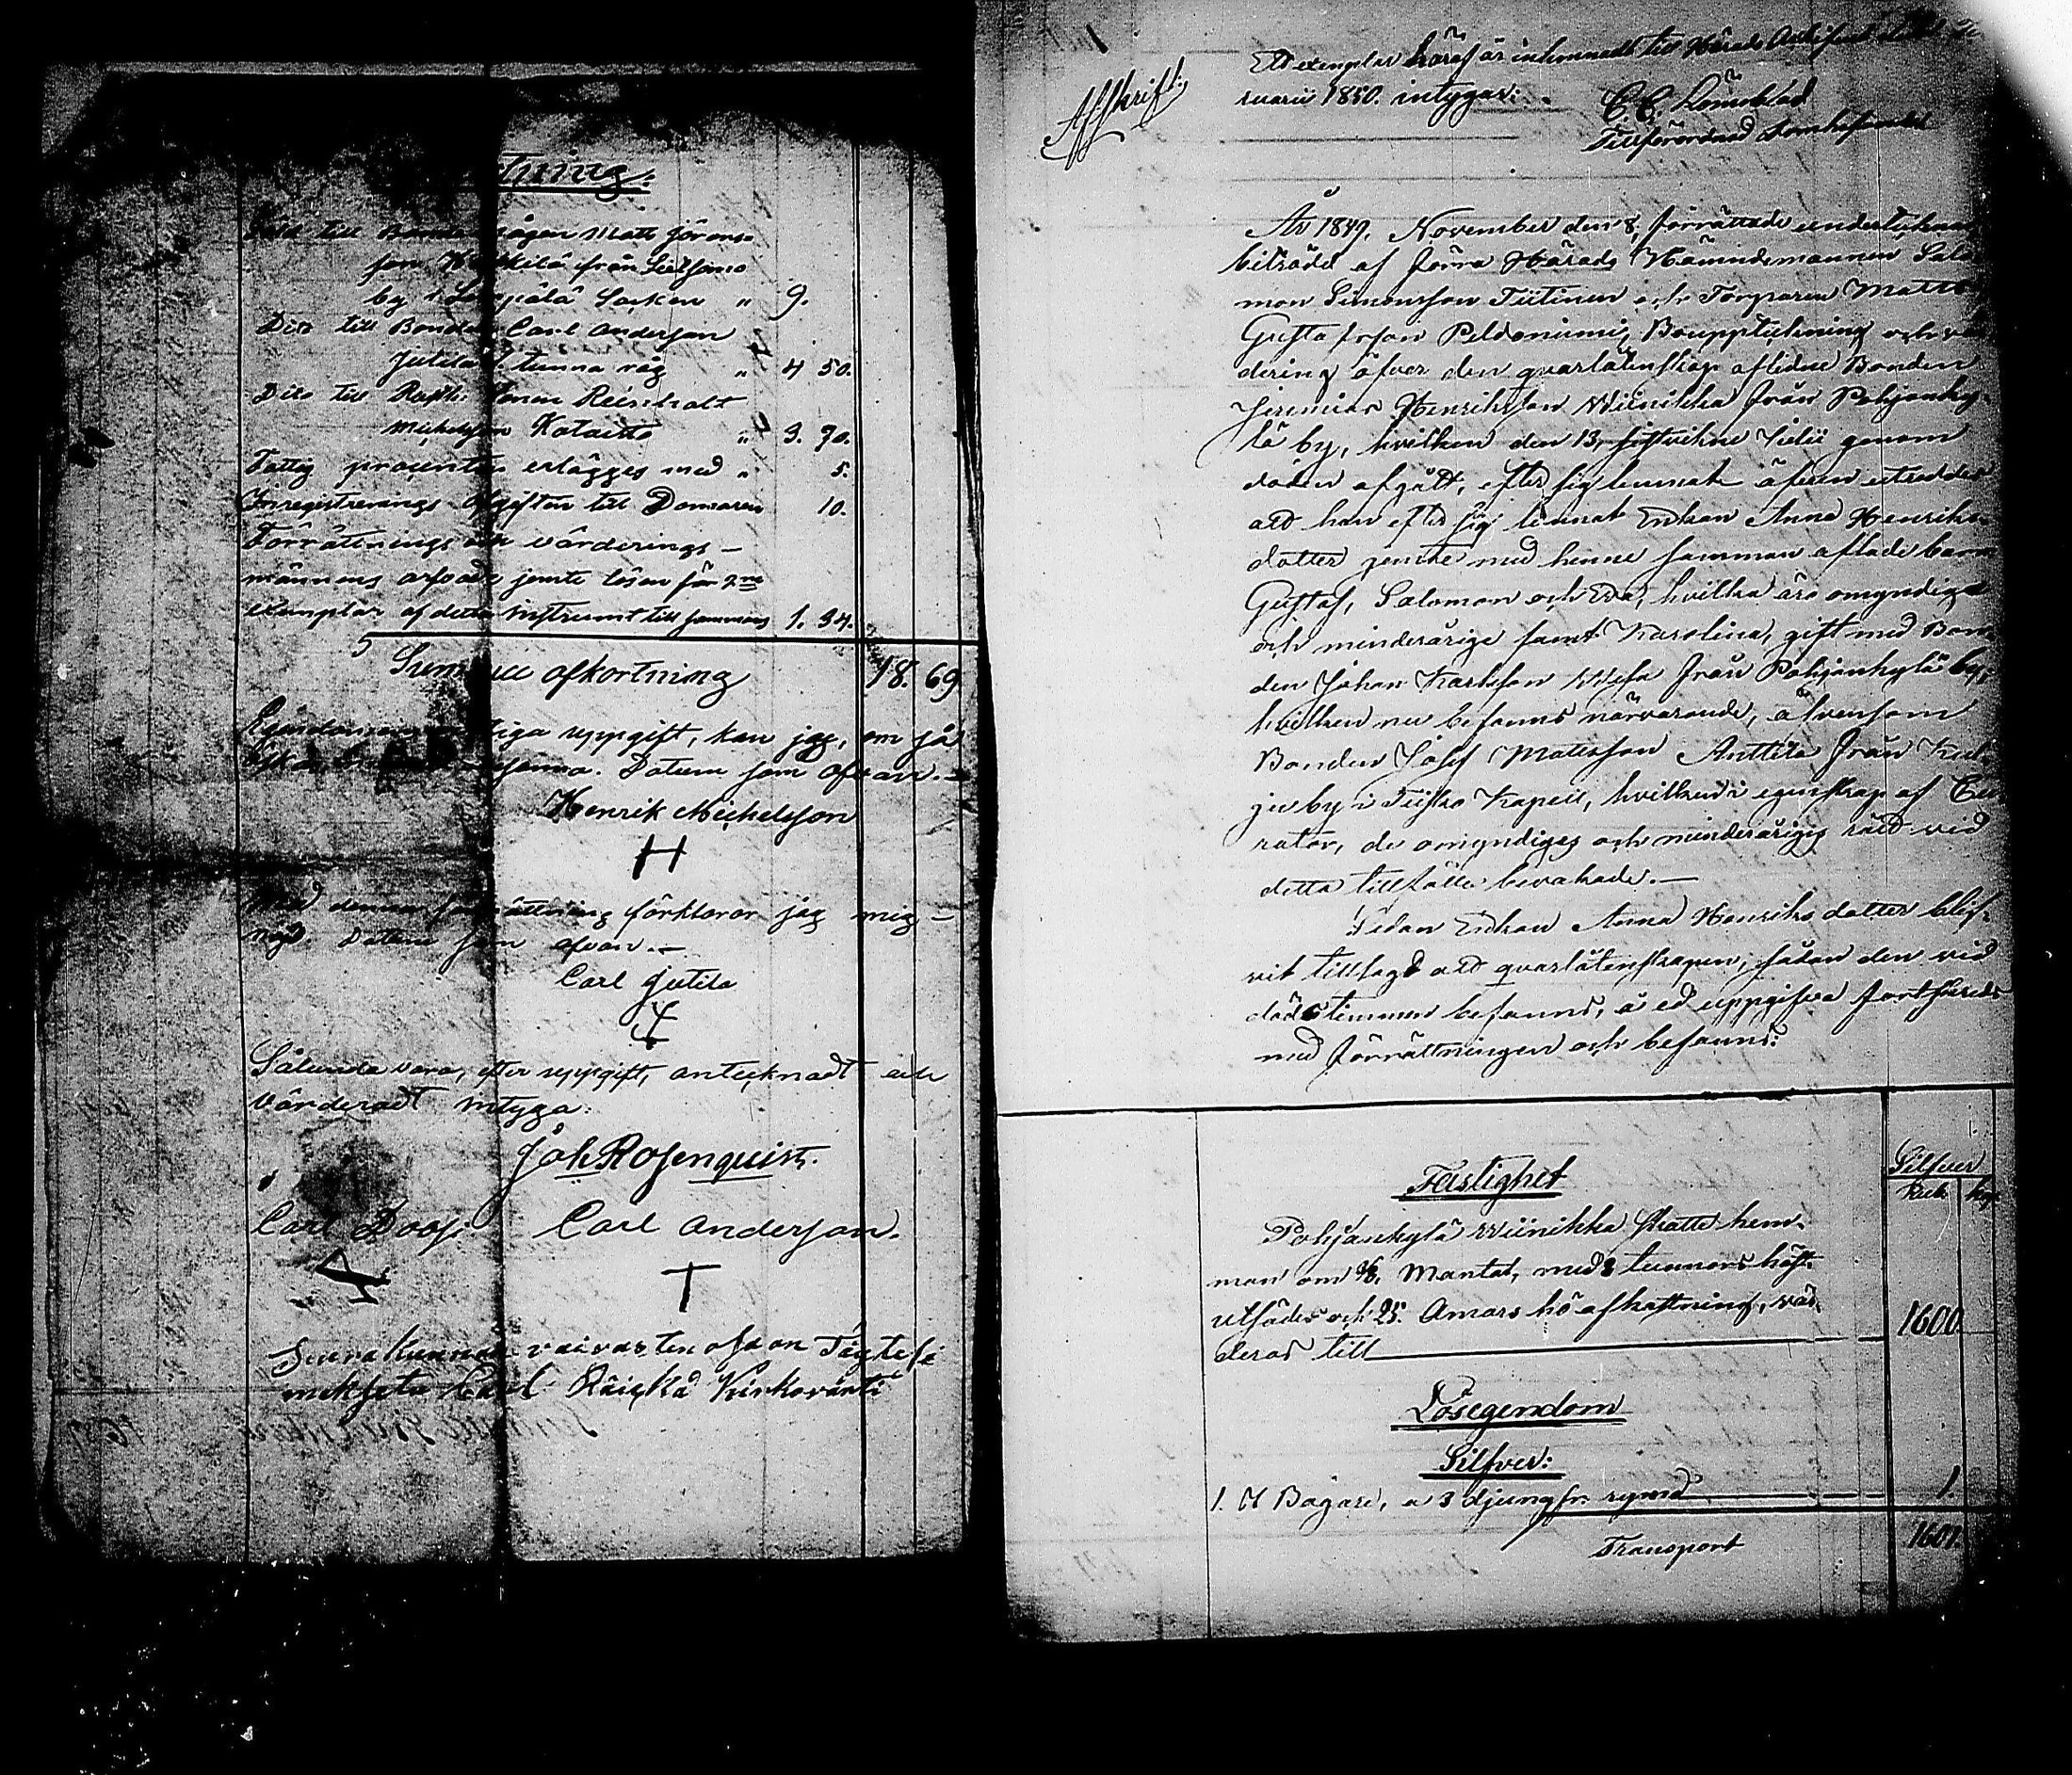 tning.
till Bonde Mats Jörans-
son från Sietsamo
by i Socken " 9.
Dito till Bonden Carl Anderson
Jutila 1. tunna råg " 4 50.
Dito till Reinholt
Michelsson " 3. 70.
Fattig procenten erlägges med " 5.
Inregistrerings afgiften till Domaren 10.
Förrättnings och värderings-
männens arfvode jemte lösen för 2ne
exemplar af detta Instrument till sammans 1. 34.
Summa afkortning 18. 69
uppgift, kan jag, om så
Datum som ofvan.—
Henrik Michelsson
H
Med denna förrättning förklarar jag mig
nögd. Datum som ofvan.—
Carl Jutila
Sålunda vara, efter uppgift, antecknadt och
värderadt intyga:
Joh Rosenquist.
Carl Doos. Carl Anderson.
T
Seurakunnan vaivasten osaan
Kirkovärti
Afskrift.
Ett exemplar häraf är inkommadt till Härads
ruarii 1850. intygar:
C. C. Lönnblad
Tillförordnad
År 1849, November den 8, förrättade undertecknad
biträdd af förra Härads Nämndemannen Salo-
mon Simonsson Tiitinen och Torparen Matts
Gustafsson Peldoniemi, Boupptekning och vär-
dering öfver den qvarlåtenskap aflidne Bonden
Jeremias Henriksson Wiinikka från Pohjanky-
lä by, hvilken den 13, sistvikne Julii genom
döden afgått, efter sig lemnat äfven utreddes
att han efter sig lemnat Enkan Anna Henriks-
dotter jemte med henne samman aflade barn
Gustaf, Salomon och Eva, hvilka äro omyndige
och minderårige samt Karolina, gift med Bon-
den Johan Karlsson Wesa från Pohjankylä by,
hvilken nu befanns närvarande, äfvensom
Bonden Josef Matsson Anttila från Kul-
ju by i Teisko Kapell, hvilken i egenskap af Cu-
rator, de omyndiges och minderåriges rätt vid
detta tillfälle bevakade.—
Sedan Enkan Anna Henriksdotter blif-
vit tillsagd att qvarlåtenskapen, sådan den vid
dödstimmen befanns, å ed uppgifva fortfors
med förrättningen och befanns:
Silfver
Rub. kop.
Fastighet
Pohjankylä Wiinikka skatte hem-
man om 3/8. Mantal, med 8 tunnors höst-
utsäde och 25. Åmars hö afkastning, vär-
deras till 1600
Lösegendom
Silfver:
1. st Bägare, a 3 djungfr. rymd 1.
Transport 1601.